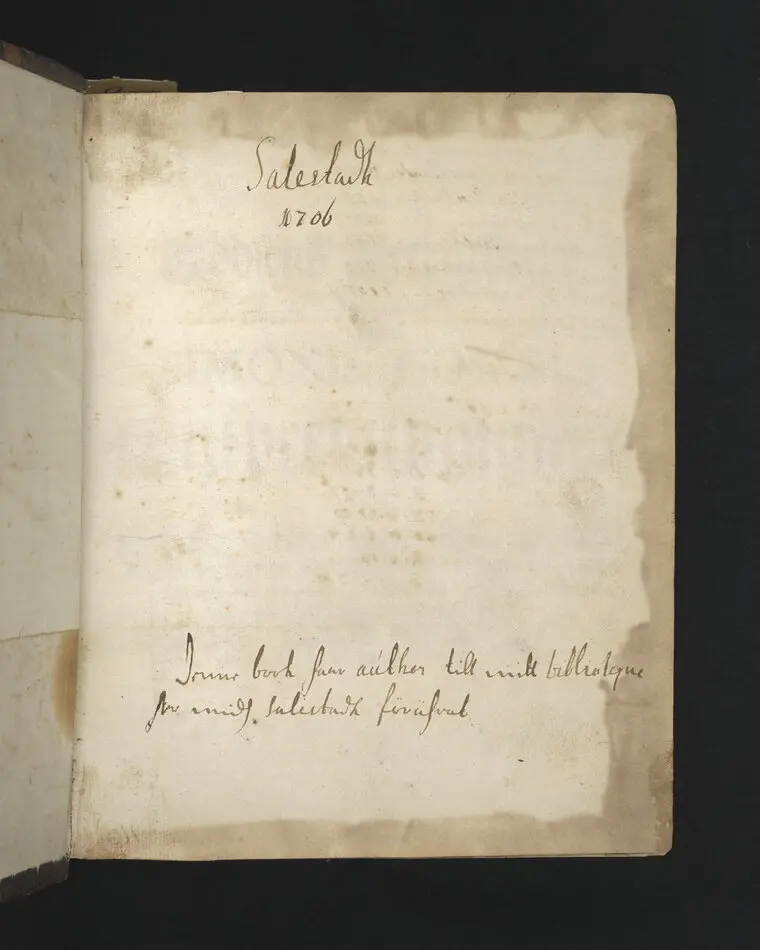 Salestadh
1706
Denne book haar aúther till mitt biblioteque
Salestadh förährat